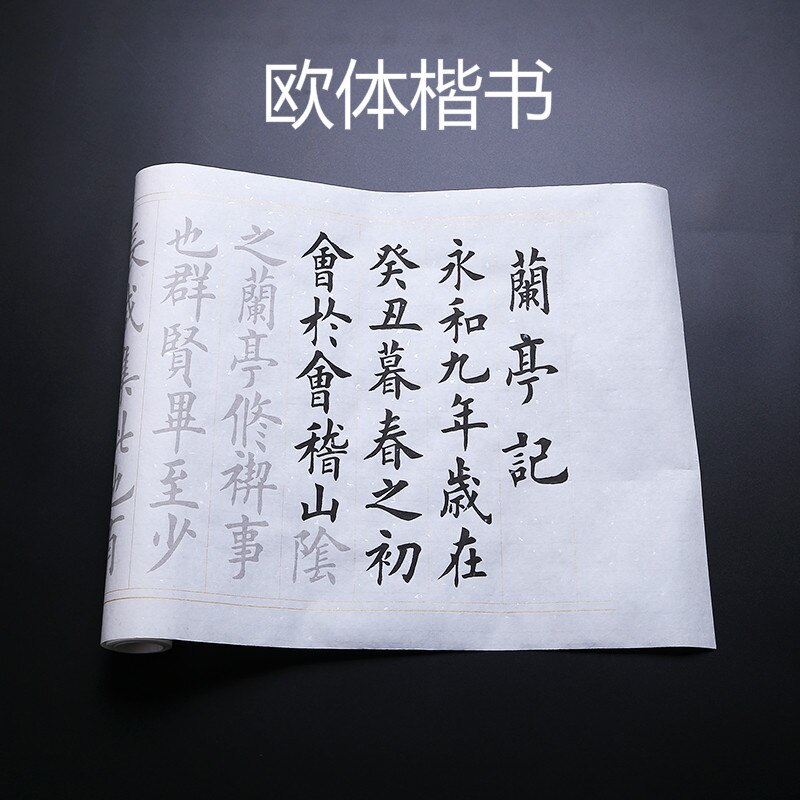 欧体楷书
蘭亭記
永和九年歲在
癸丑暮春之初
會於會稽山陰
之蘭亭修禊事
也群賢畢至少
長咸集此地有